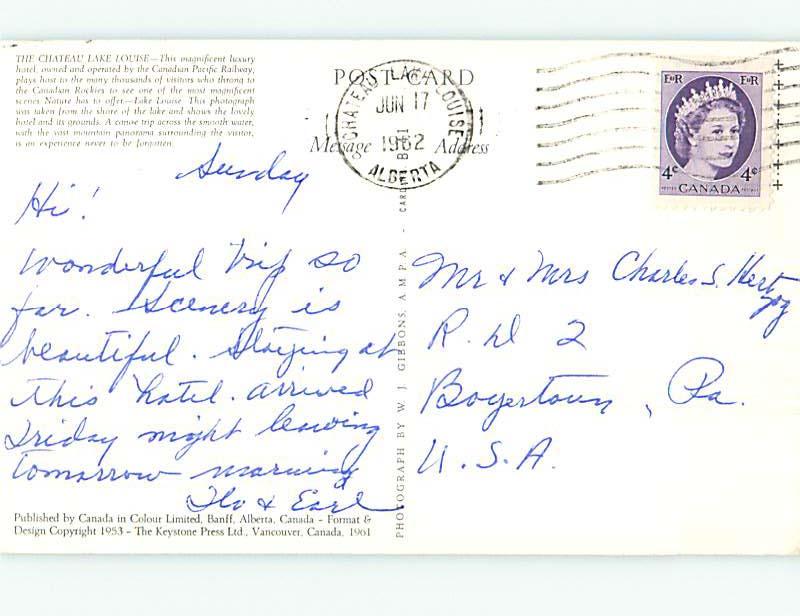 THE CHATEAU LAKE LOUISE—This magnificent luxury
hotel, owned and operated by the Canadian Pacific Railway,
plays host to the many thousands of visitors who throng to
the Canadian Rockies to see one of the most magnificent
scenes Nature has to offer—Lake Louise. This photograph
was taken from the shore of the lake and shows the lovely
hotel and its grounds. A canoe trip across the smooth water,
with the vast mountain panorama surrounding the visitor,
is an experience never to be forgotten.
POST CARD
Message Address
CHATEAU LAKE LOUISE
JUN 17
1962
ALBERTA
EIIR EIIR
4c 4c
CANADA
Sunday
Hi!
Wonderful trip so
far. Scenery is
beautiful. Staying at
this hotel. arrived
Friday night leaving
tomorrow morning
Flo & Earl
Mr & Mrs Charles S. Hertzog
R. D 2
Boyertown, Pa.
U.S.A.
PHOTOGRAPH BY W. J. GIBBONS, A M P A - CARD
Published by Canada in Colour Limited, Banff, Alberta, Canada - Format &
Design Copyright 1953 - The Keystone Press Ltd., Vancouver, Canada, 1961